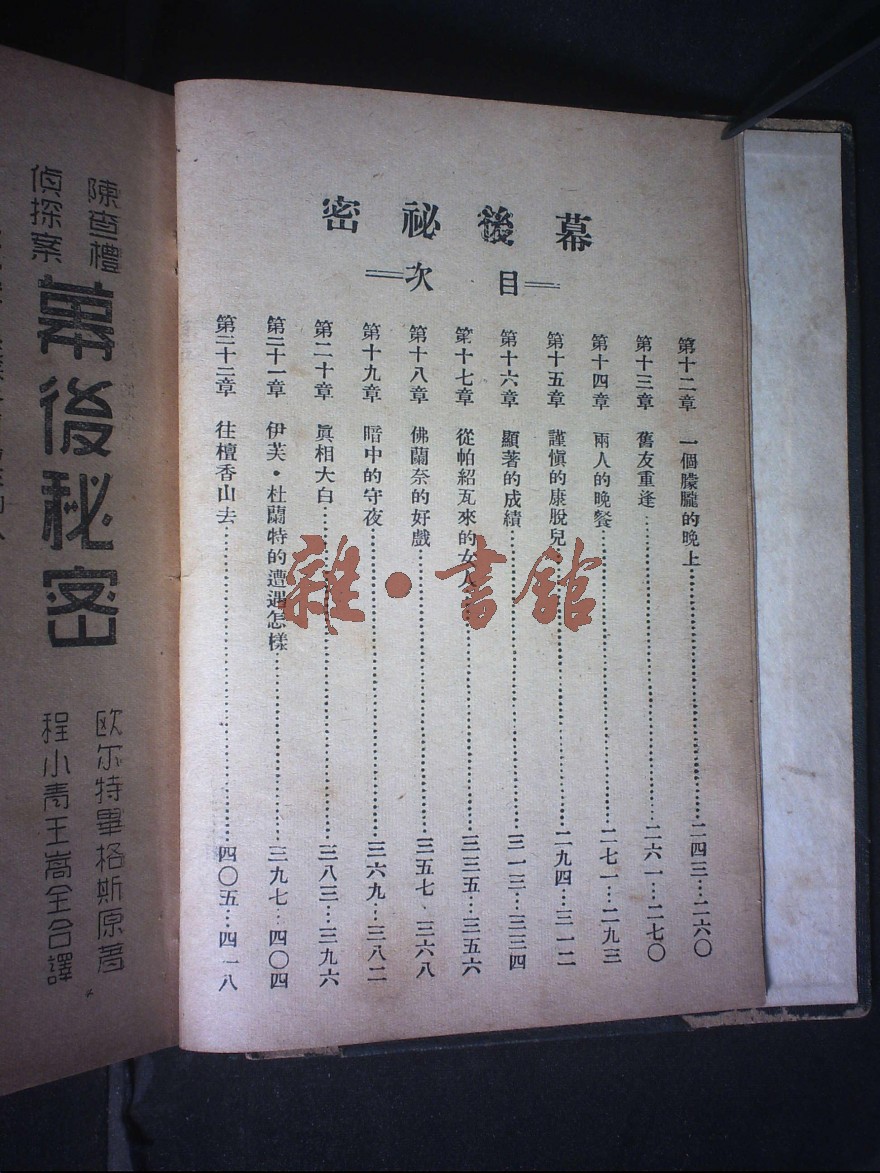 幕後祕密
目次
第十二章 一個朦朧的晚上…二四三…二六〇
第十三章 舊友重逢…二六一…二七〇
第十四章 兩人的晚餐…二七一…二九三
第十五章 謹愼的康脫兒…二九四…三一二
第十六章 顯著的成績…三一三…三三四
第十七章 從帕紹瓦來的女人…三三五…三五六
第十八章 佛蘭奈的好戲…三五七…三六八
第十九章 暗中的守夜…三六九…三八二
第二十章 眞相大白…三八三…三九六
第二十一章 伊芙·杜蘭特的遭遇怎樣…三九七…四〇四
第二十二章 往檀香山去…四〇五…四一八
陳查禮
偵探案
幕後秘密
歐尔特畢格斯原著
程小青王嵩全合譯
雜·書館